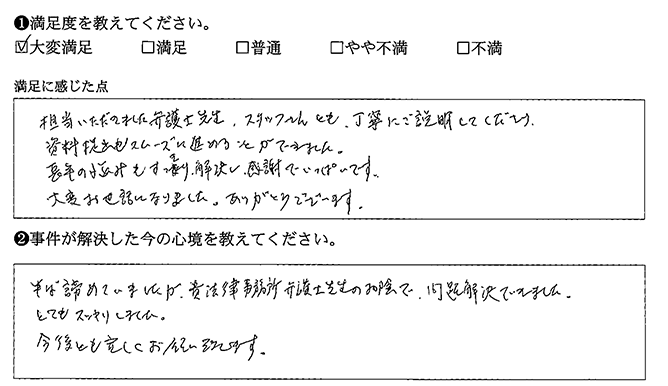 ❶満足度を教えてください。
☑大変満足 □満足 □普通 □やや不満 □不満
満足に感じた点
担当いただきました弁護士先生、スタッフさんとも、丁寧にご説明してくださり、
資料提出もスムーズに進めることができました。
長年の悩みもすっきり解決し感謝でいっぱいです。
大変お世話になりました。ありがとうございます。
❷事件が解決した今の心境を教えてください。
半ば諦めていましたが、貴法律事務所弁護士先生のお陰で、問題解決できました。
とてもスッキリしました。
今後とも宜しくお願い致します。